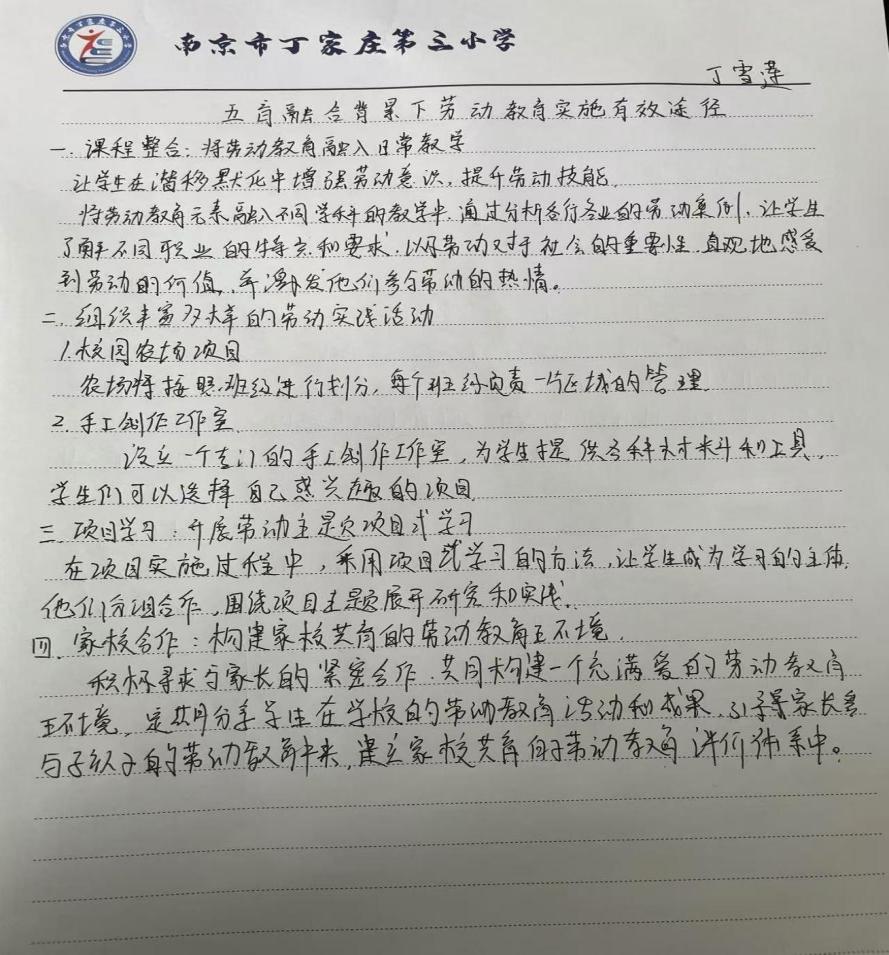 南京市丁家庄第三小学
丁雪莲
五育融合背景下劳动教育实施有效途径
一.课程整合:将劳动教育融入日常教学
让学生在潜移默化中增强劳动意识,提升劳动技能.
将劳动教育元素融入不同学科的教学中,通过分析各行各业的劳动案例,让学生
了解不同职业的特点和要求,以及劳动对于社会的重要性,直观地感受
到劳动的价值,并激发他们参与劳动的热情。
二.组织丰富多样的劳动实践活动
1.校园农场项目
农场将按照班级进行划分,每个班级负责一片区域的管理.
2.手工创作工作室
设立一个专门的手工创作工作室,为学生提供各种材料和工具,
学生们可以选择自己感兴趣的项目.
三.项目学习:开展劳动主题项目式学习
在项目实施过程中,采用项目式学习的方法,让学生成为学习的主体.
他们分组合作,围绕项目主题展开研究和实践.
四.家校合作:构建家校共育的劳动教育环境.
积极寻求与家长的紧密合作,共同构建一个充满爱的劳动教育
环境,定期分享学生在学校的劳动教育活动和成果,引导家长参
与子女的劳动教育中来,建立家校共育的劳动教育评价体系中。